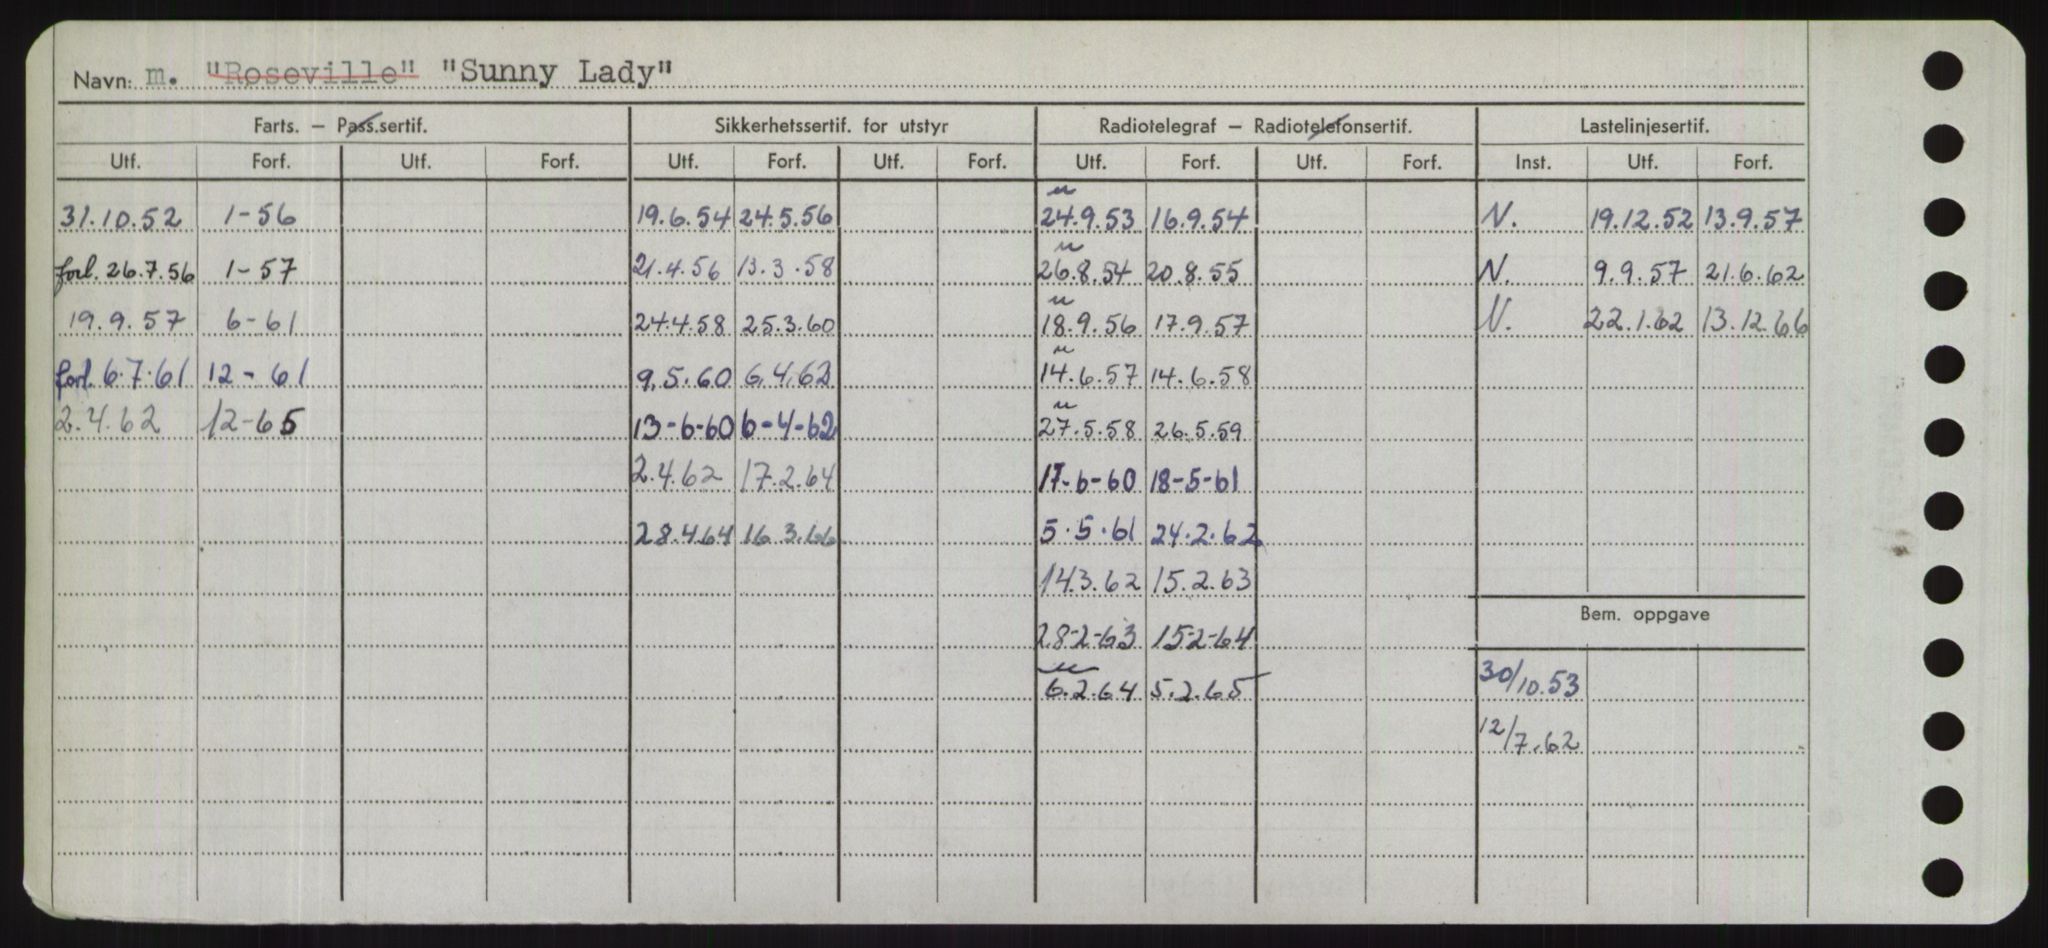 Navn: m. "Roseville" "Sunny Lady"
Farts. – Pass.sertif. Sikkerhetssertif. for utstyr Radiotelegraf – Radiotelefonsertif. Lastelinjesertif.
Utf. Forf. Utf. Forf. Utf. Forf. Utf. Forf. Utf. Forf. Utf. Forf. Inst. Utf. Forf.
31.10.52 1-56 19.6.54 24.5.56 24.9.53 16.9.54 N. 19.12.52 13.9.57
forl. 26.7.56 1-57 21.4.56 13.3.58 26.8.54 20.8.55 N. 9.9.57 21.6.62
19.9.57 6-61 24.4.58 25.3.60 18.9.56 17.9.57 N. 22.1.62 13.12.66
forl. 6.7.61 12-61 9.5.60 6.4.62 14.6.57 14.6.58
2.4.62 12-65 13-6-60 6-4-62 27.5.58 26.5.59
2.4.62 17.2.64 17-6-60 18-5-61
28.4.64 16.3.66 5.5.61 24.2.62
14.3.62 15.2.63
Bem. oppgave
28-2-63 15-2-64
30/10.53
6.2.64 5.2.65
12/7.62